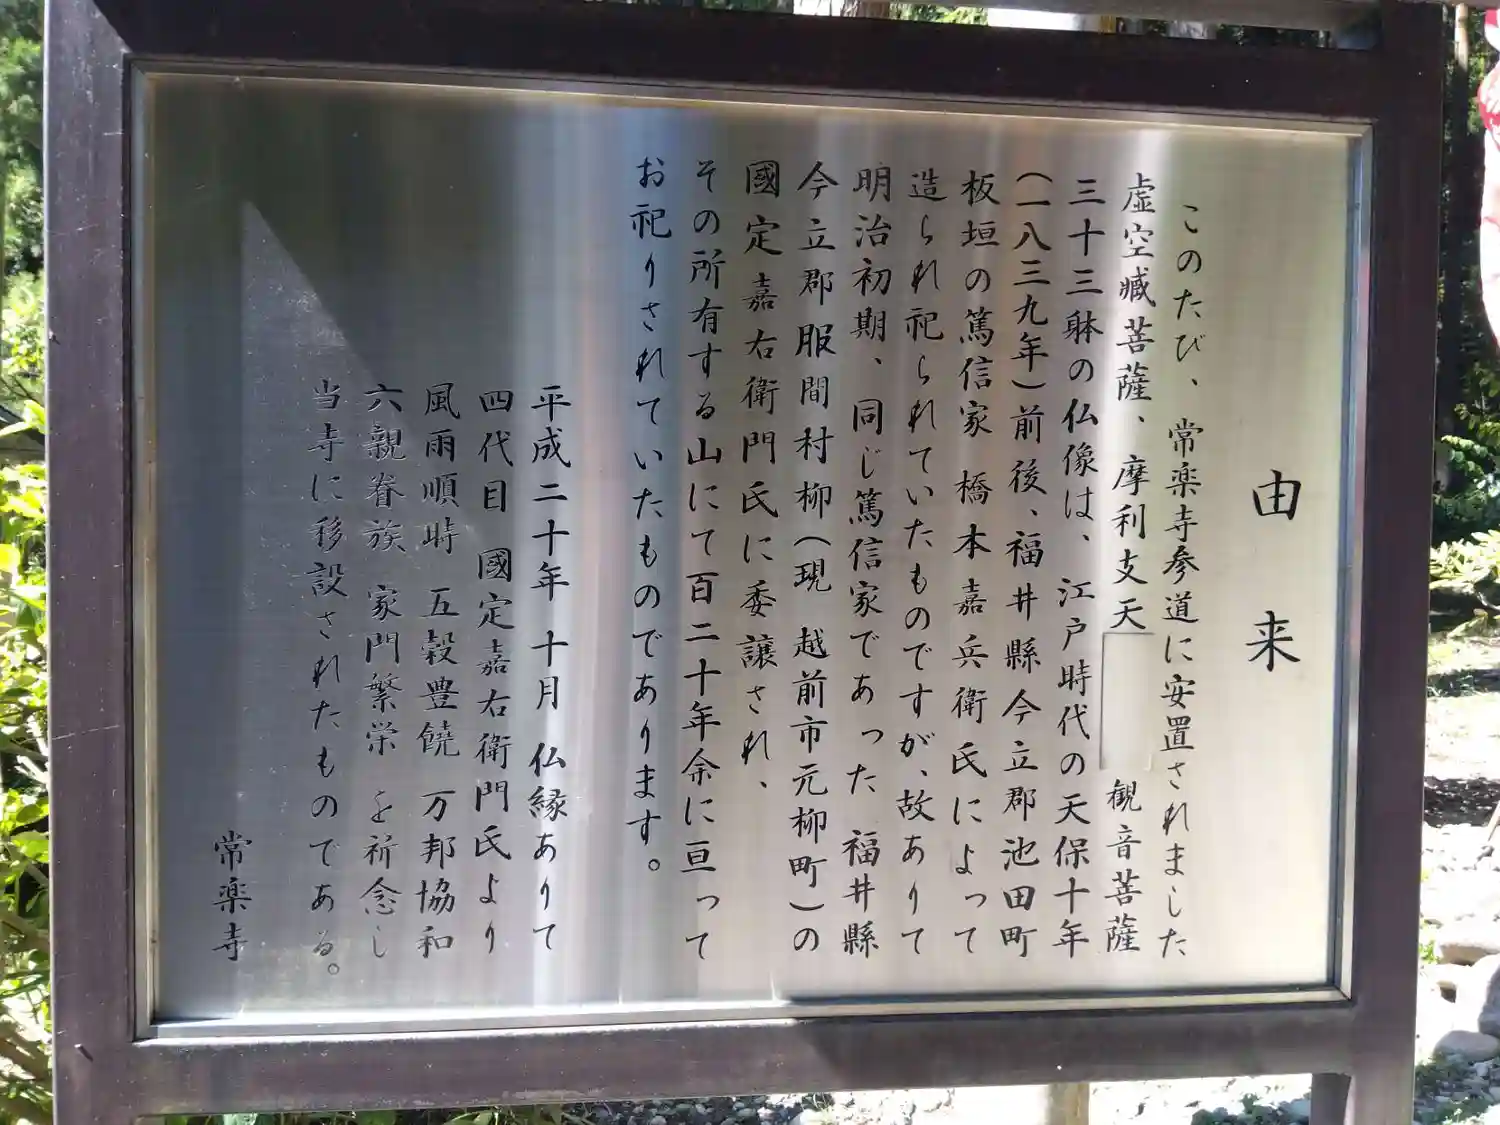 由来
このたび、常楽寺参道に安置されました
虚空藏菩薩、摩利支天 観音菩薩
三十三躰の仏像は、江戸時代の天保十年
(一八三九年)前後、福井縣今立郡池田町
板垣の篤信家 橋本嘉兵衛氏によって
造られ祀られていたものですが、故ありて
明治初期、同じ篤信家であった 福井縣
今立郡服間村柳(現 越前市元柳町)の
國定嘉右衛門氏に委譲され、
その所有する山にて百二十年余に亘って
お祀りされていたものであります。
平成二十年 十月 仏縁ありて
四代目 國定嘉右衛門氏より
風雨順時 五穀豊饒 万邦協和
六親眷族 家門繁栄 を祈念し
当寺に移設されたものである。
常楽寺